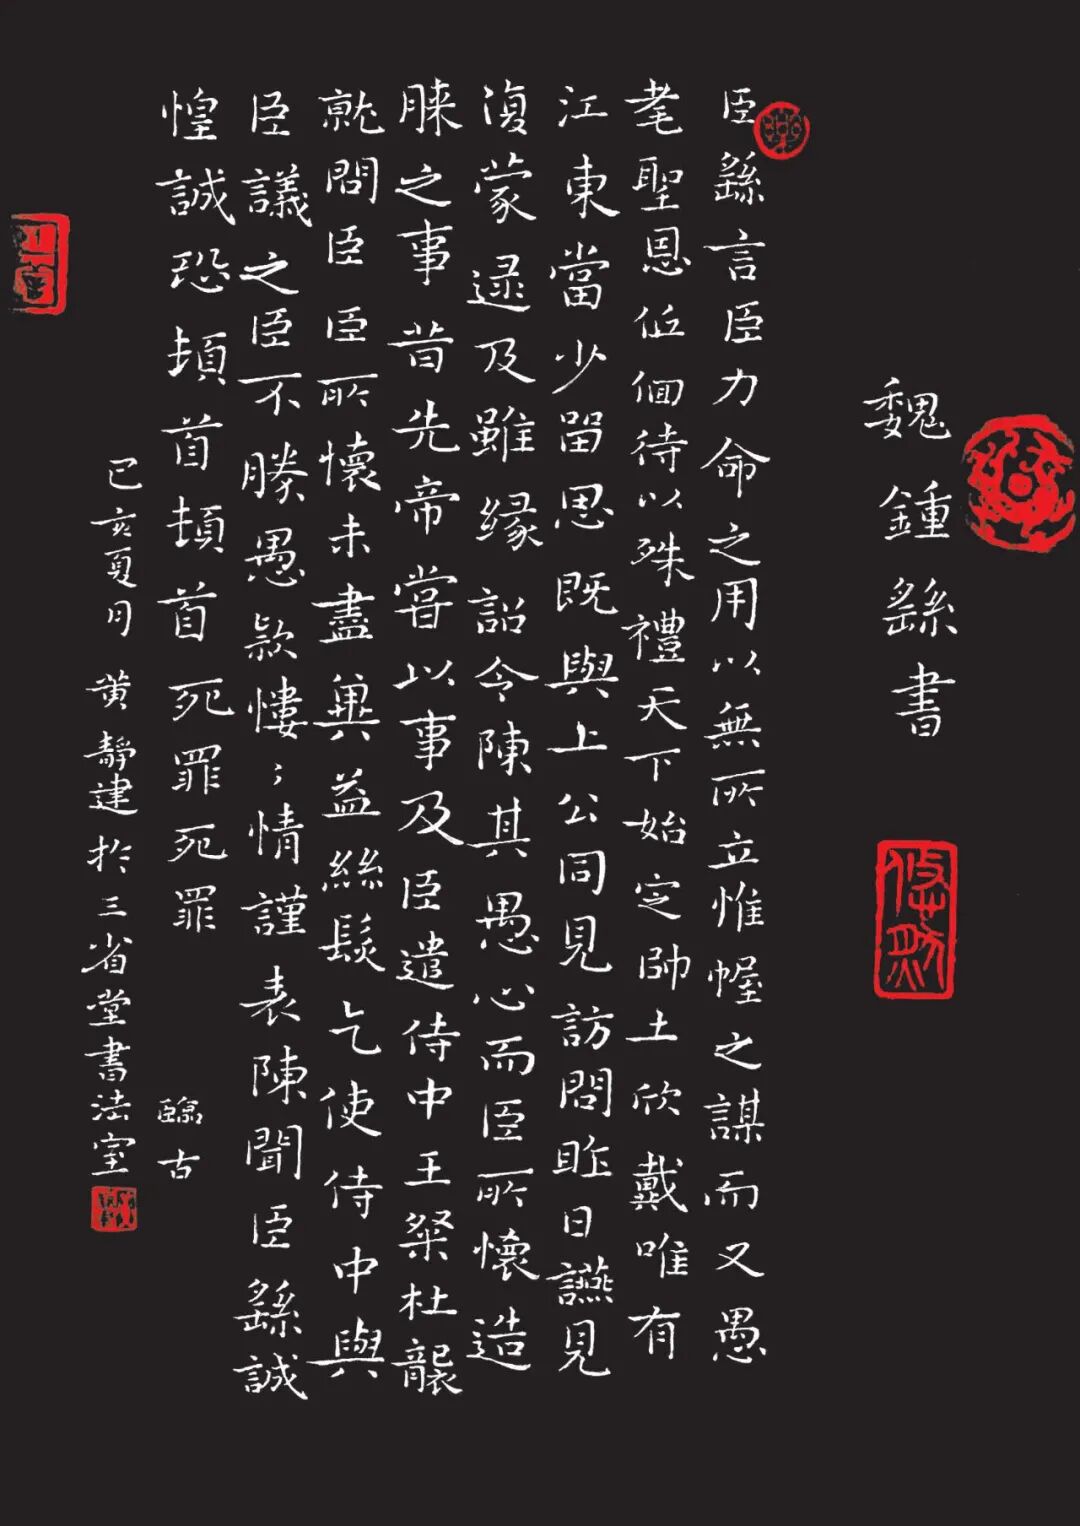 魏鍾繇書
臣繇言臣力命之用以無所立惟幄之謀而又愚
耄聖恩低佪待以殊禮天下始定帥土欣戴唯有
江東當少留思既與上公同見訪問昨日讌見
復蒙逮及雖緣詔令陳其愚心而臣所懷造
膝之事昔先帝嘗以事及臣遣侍中王粲杜襲
就問臣臣所懷未盡奧益絲髮乞使侍中與
臣議之臣不勝愚款慺；情謹表陳聞臣繇誠
惶誠恐頓首頓首死罪死罪
臨古
己亥夏月黄靜建於三省堂書法室